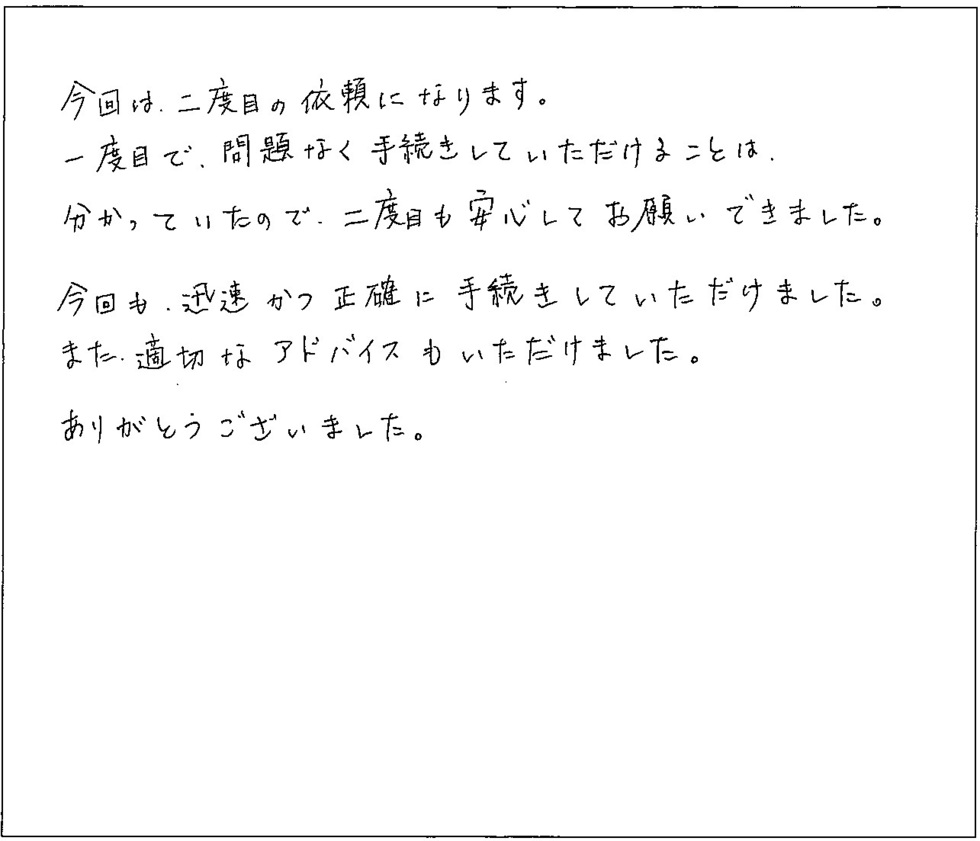 今回は、二度目の依頼になります。
一度目で、問題なく手続きしていただけることは、
分かっていたので、二度目も安心してお願いできました。
今回も、迅速かつ正確に手続きしていただけました。
また、適切なアドバイスもいただけました。
ありがとうございました。